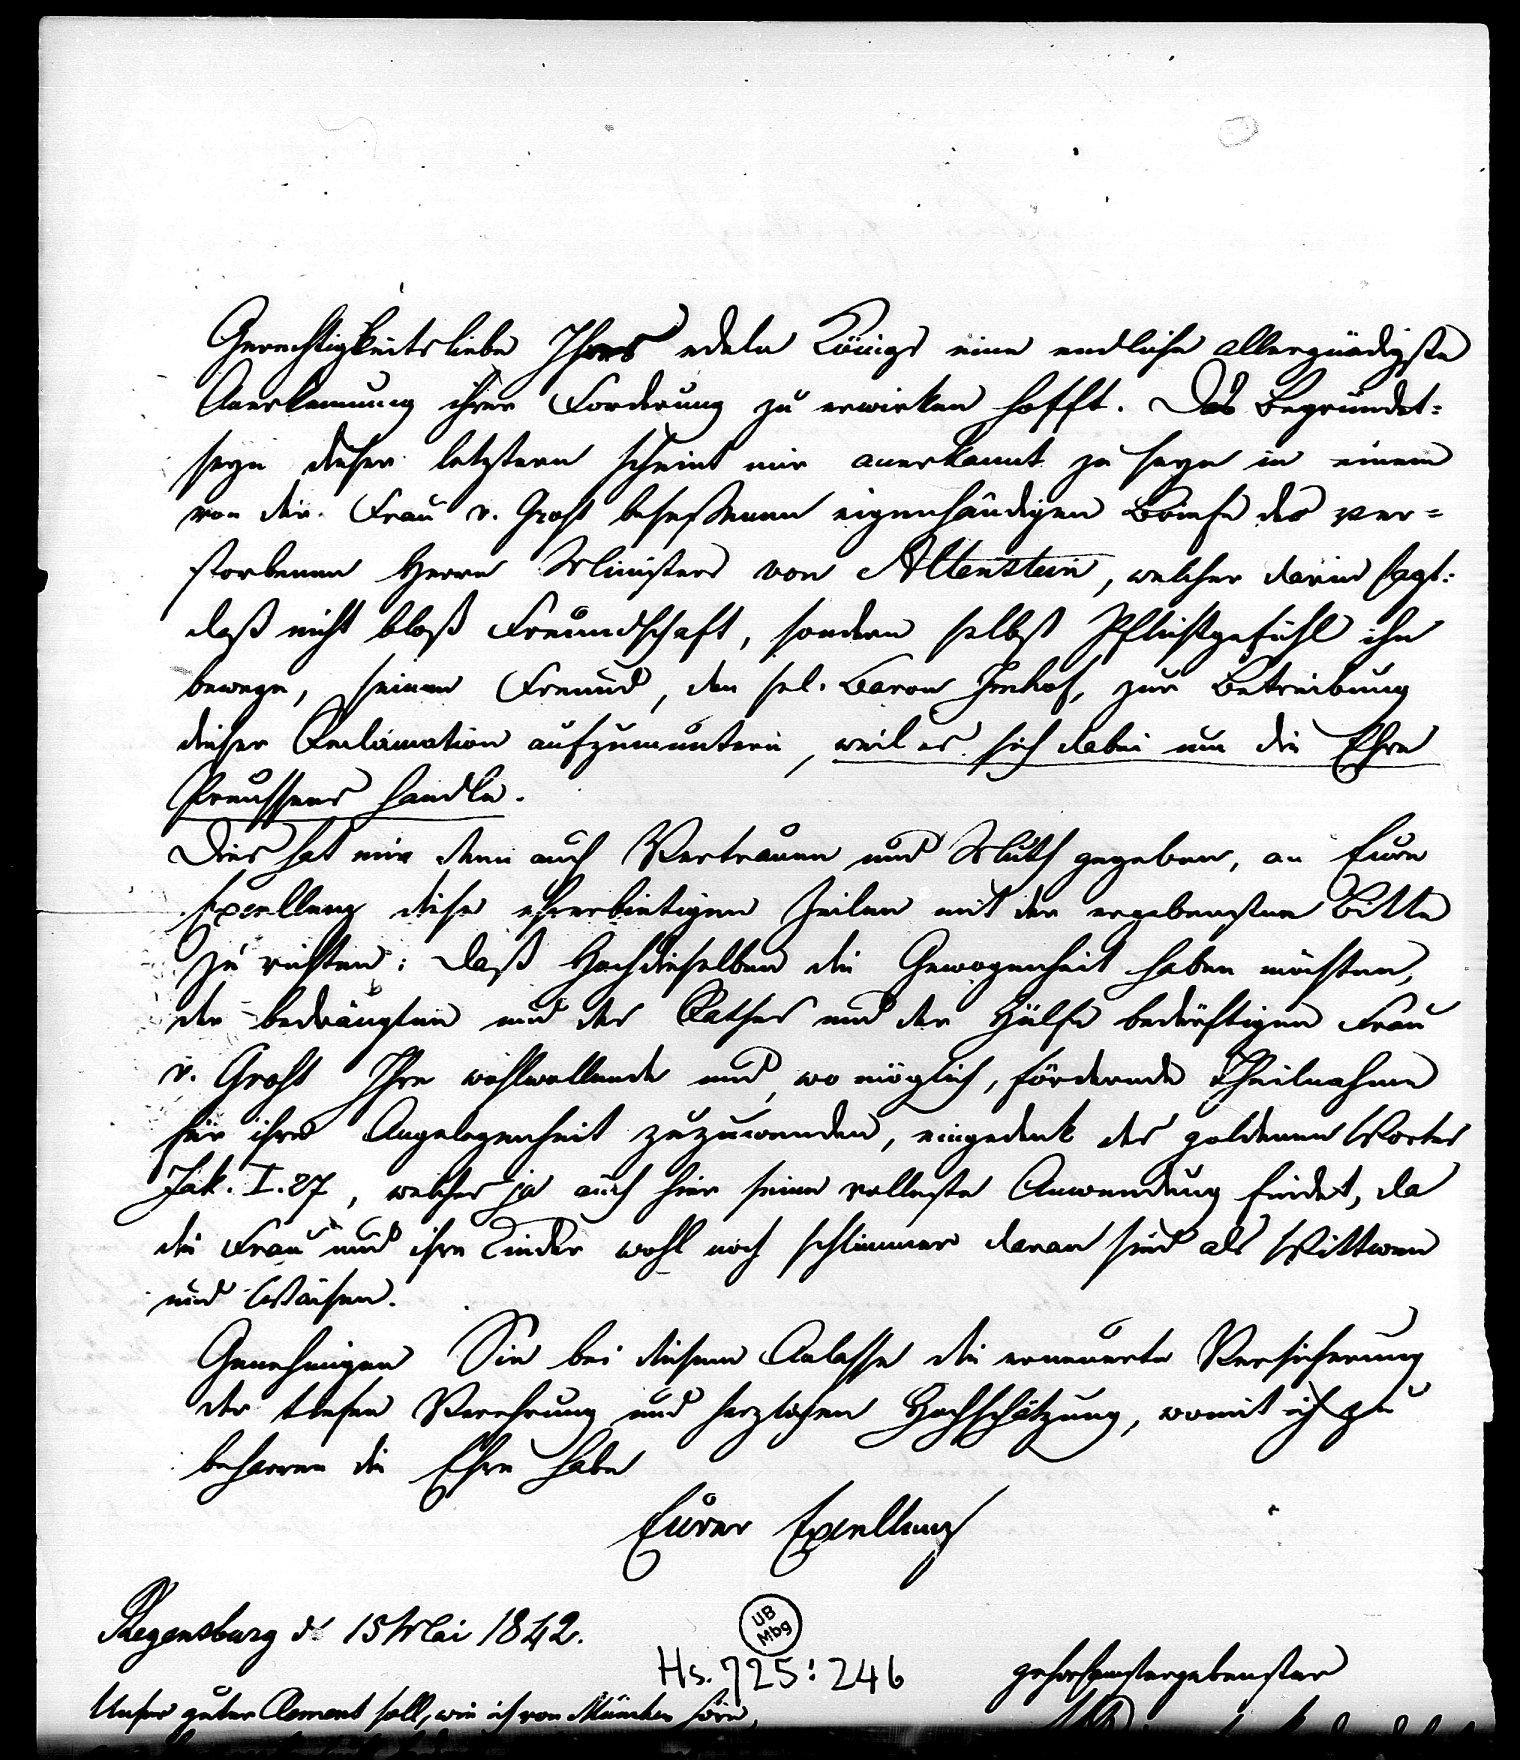 Gerechtigkeitsliebe Ihres edeln Königs eine endliche allergnädigste
Anerkennung ihrer Forderung zu erwirken hofft. Das Begründet-
seyn dieser letztern scheint mir anerkannt zu seyn in einem
von der Frau v. Groß besessenen eigenhändigen Briefe des ver-
storbenen Herrn Ministers von Altenstein, welcher darin sagt:
daß nicht bloß Freundschaft, sondern selbst Pflichtgefühl ihn
bewege, seinen Freund, den sel. Baron Imhof, zur Betreibung
dieser Reclamation aufzumuntern, weil es sich dabei um die Ehre
Preussens handle.
Dies hat mir denn auch Vertrauen und Muth gegeben, an Eure
Excellenz diese ehrerbietigen Zeilen mit der ergebensten Bitte
zu richten: daß Hochdieselben die Gewogenheit haben möchten,
der bedrängten und des Rathes und der Hülfe bedürftigen Frau
v. Groß Ihre wohlwollende und, wo möglich, fördernde Theilnahme
für ihre Angelegenheit zuzuwenden, eingedenk des goldenen Wortes
Jak. I. 27, welches ja auch hier seine vollste Anwendung findet, da
die Frau und ihre Kinder wohl noch schlimmer daran sind als Wittwen
und Waisen.
Genehmigen Sie bei diesem Anlasse die erneuerte Versicherung
der tiefen Verehrung und herzlichen Hochschätzung, womit ich zu
beharren die Ehre habe
Eurer Excellenz
Regensburg d. 15 Mai 1842.
UB
Mbg
Hs. 725:246
gehorsamstergebenster
Unser guter Clement soll, wie ich von München höre,